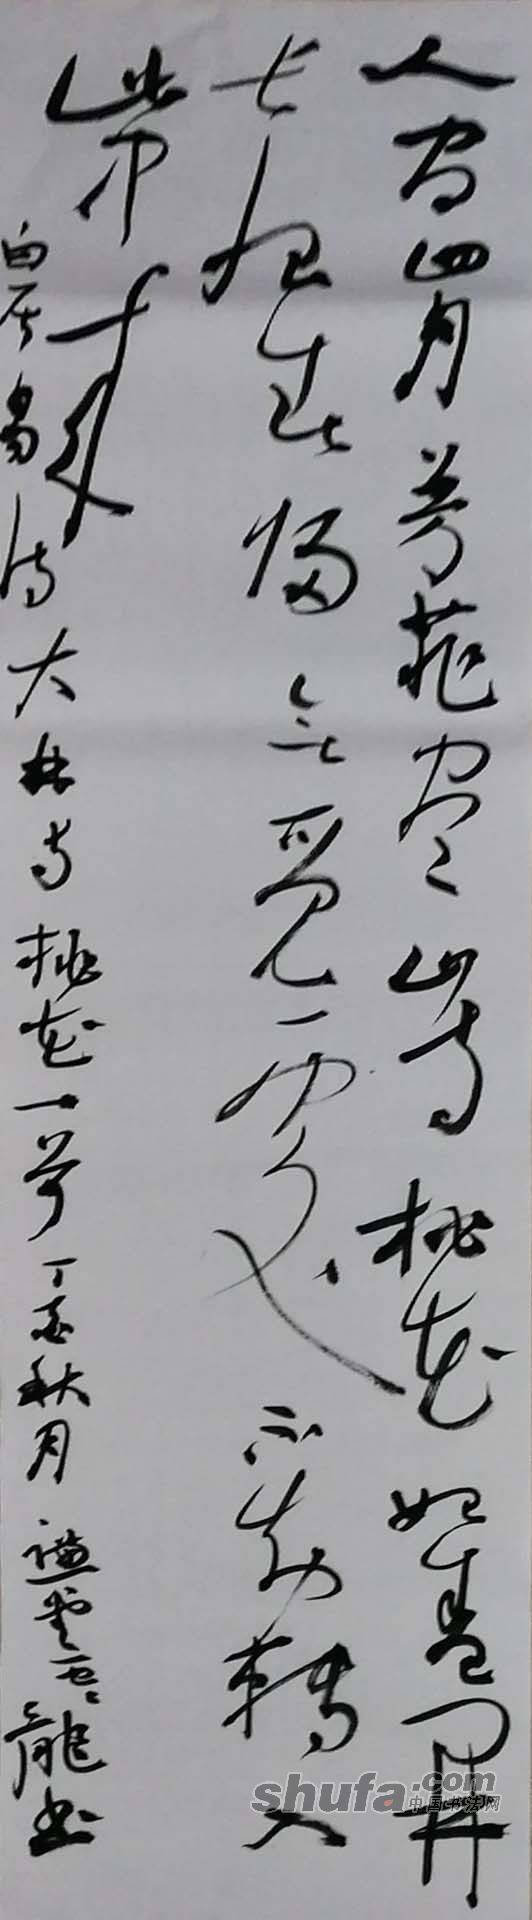 人间四月芳菲尽山寺桃花始盛開
长恨春归无觅处不知轉入
此中来
白居易诗大林寺桃花一首丁酉秋月龍书
shufa.com
中国书法网